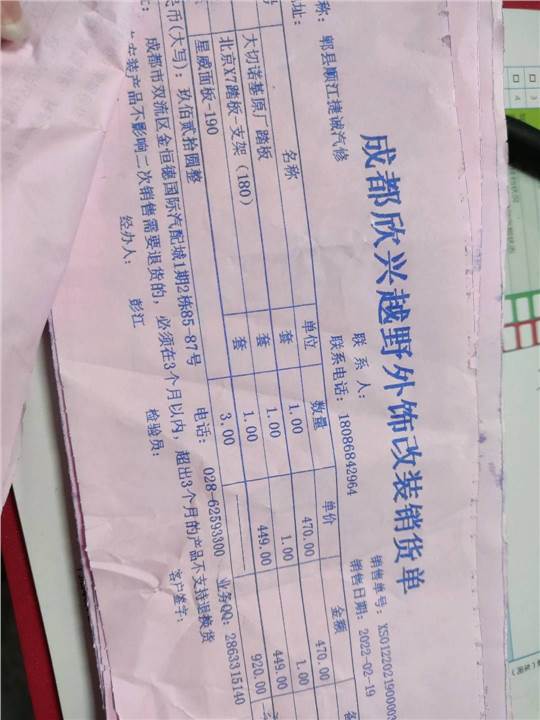 成都欣兴越野外饰改装销货单
销售单号: XS0122021900009
称: 郫县顺江捷诚汽修
联 系 人:
销售日期: 2022-02-19
址:
联系电话: 18086842964
名称 单位 数量 单价 金额
大切诺基原厂踏板 套 1.00 470.00 470.00
北京X7踏板-支架 (180) 套 1.00 1.00 1.00
星威面板-190 套 1.00 449.00 449.00
民币(大写): 玖佰贰拾圆整 3.00 920.00
成都市双流区金恒德国际汽配城1期2栋85-87号
电话: 028-62593300
业务QQ: 2863315140
安装产品不影响二次销售需要退货的, 必须在3个月以内, 超出3个月的产品不支持退换货
经办人: 彭江
检验员:
客户签字: